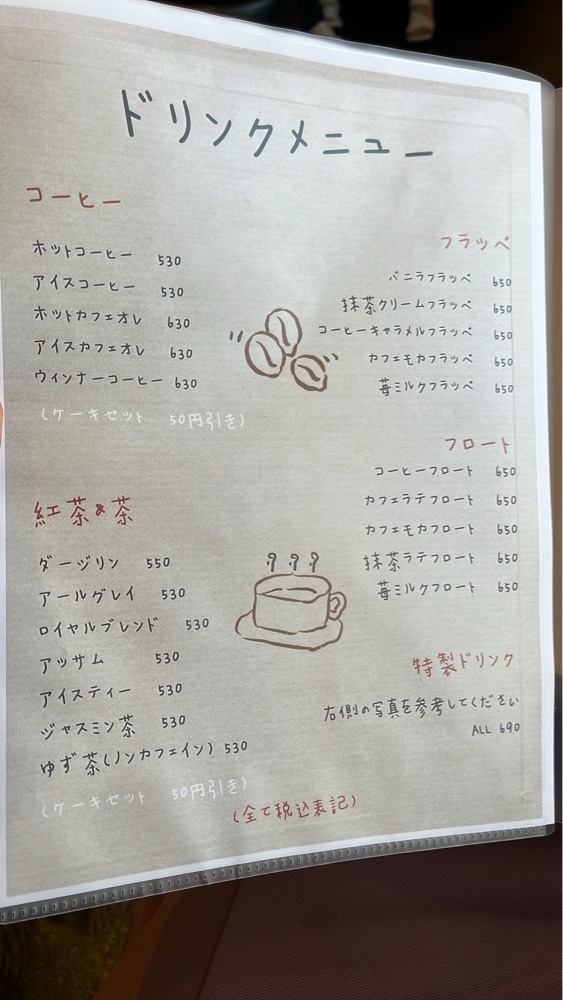 ドリンクメニュー
コーヒー
ホットコーヒー 530
アイスコーヒー 530
ホットカフェオレ 630
アイスカフェオレ 630
ウィンナーコーヒー 630
(ケーキセット 50円引き)
紅茶&茶
ダージリン 550
アールグレイ 530
ロイヤルブレンド 530
アッサム 530
アイスティー 530
ジャスミン茶 530
ゆず茶(ノンカフェイン) 530
(ケーキセット 50円引き)
フラッペ
バニラフラッペ 650
抹茶クリームフラッペ 650
コーヒーキャラメルフラッペ 650
カフェモカフラッペ 650
苺ミルクフラッペ 650
フロート
コーヒーフロート 650
カフェラテフロート 650
カフェモカフロート 650
抹茶ラテフロート 650
苺ミルクフロート 650
特製ドリンク
右側の写真を参考してください
ALL 690
(全て税込表記)